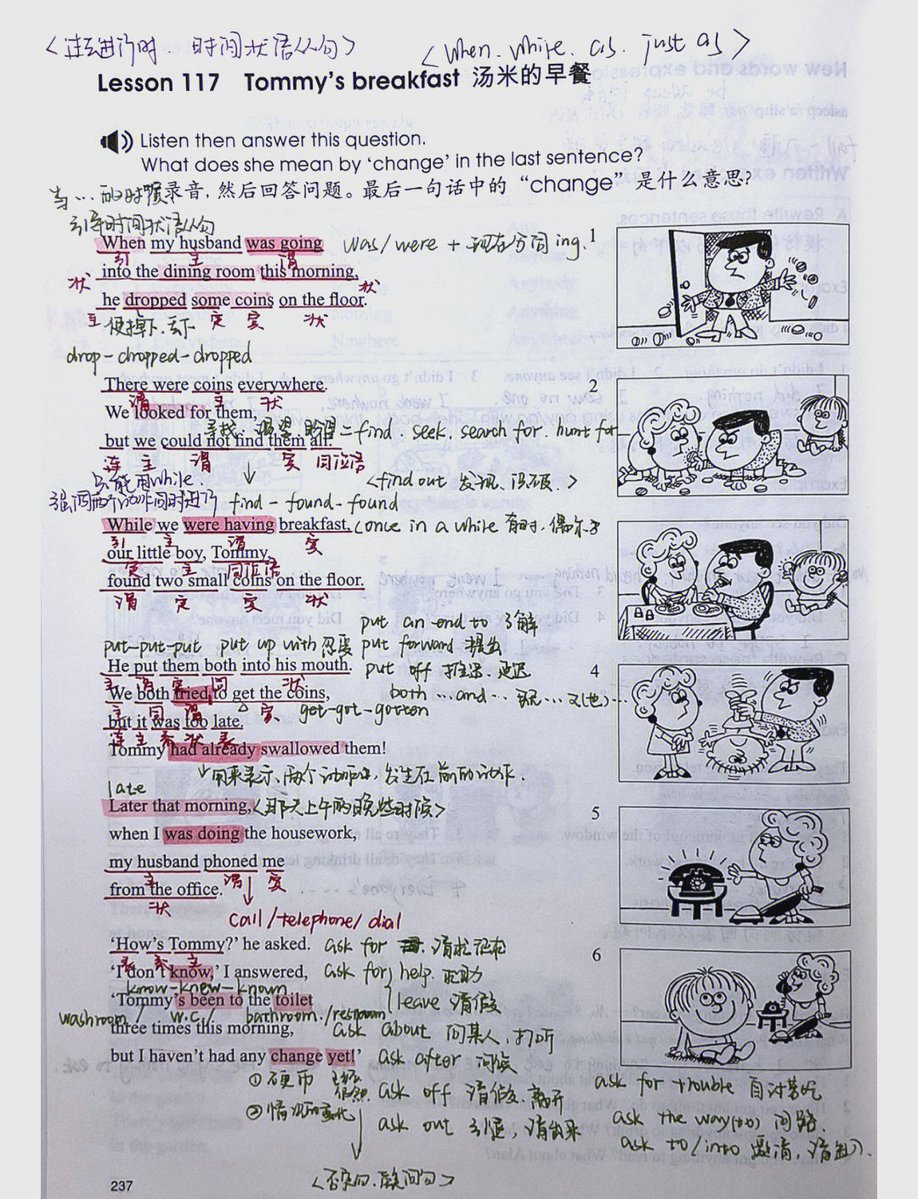 <过去进行时. 时间状语从句>
<when. while. as. just as>
Lesson 117 Tommy's breakfast 汤米的早餐
Listen then answer this question.
What does she mean by 'change' in the last sentence?
听录音，然后回答问题。最后一句话中的“change”是什么意思?
当…的时候
引导时间状语从句
When my husband was going
was/were + 现在分词 ing.
1
引 主 谓
into the dining room this morning,
状 状
he dropped some coins on the floor.
主 定 宾 状
drop-dropped-dropped
There were coins everywhere.
2
谓 主 状
We looked for them,
寻找
= find. seek. search for. hunt for
but we could not find them all.
连 主 谓 宾 同位语
只能用while.
<find out 发现.
find - found - found
While we were having breakfast,
(once in a while 有时, 偶尔
3
引 主 谓 宾
our little boy, Tommy,
定 主 同位语
found two small coins on the floor.
谓 定 宾 状
put an end to 了解
put-put-put put up with 忍受 put forward 提出
He put them both into his mouth.
put off 推迟. 延迟
4
主 谓 宾 状
We both tried to get the coins,
both …and…
主 同 谓 宾
get-got-gotten
but it was too late.
连 主 系 状 表
Tommy had already swallowed them!
late
Later that morning,
<那天上午的晚些时候>
5
when I was doing the housework,
my husband phoned me
主 谓 宾
from the office.
状
call/telephone/dial
'How's Tommy?' he asked.
ask for
6
表 系 主
'I don't know,' I answered,
ask for help 求助
know-knew-known
leave 请假
'Tommy's been to the toilet
washroom / w.c / bathroom./restroom
three times this morning,
ask about 问某人, 打听
but I haven't had any change yet!'
ask after 问候
① 硬币
② 情况的变化
ask off 请假. 离开
ask out
请出来
ask for trouble 自讨苦吃
ask the way(to) 问路.
ask to/into 邀请,
<否定句. 疑问句>
237